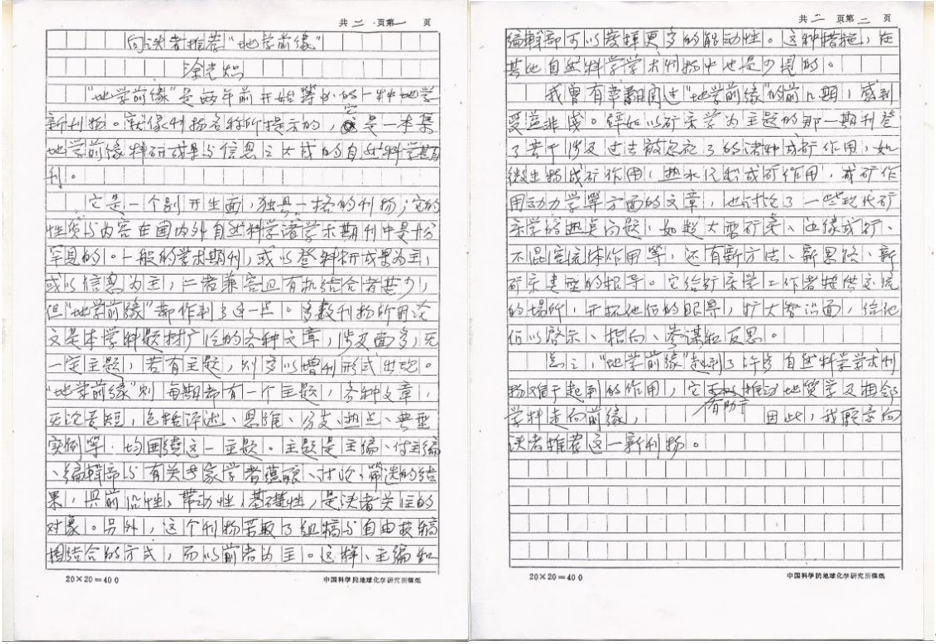 共二页第一页
向读者推荐“地学前缘”
涂光炽
“地学前缘”是两年前开始筹办的一种地学
新刊物。就像刊物名称所提示的，它是一本集
地学前缘科研成果与信息之大成的自然科学期
刊。
它是一个别开生面，独具一格的刊物；它的
性质与内容在国内外自然科学诸学术期刊中是十分
罕见的。一般的学术期刊，或以登科研成果为主，
或以信息为主，二者兼容且有机结合者甚少，
但“地学前缘”却作到了这一点。多数刊物所刊论
文是本学科题材广泛的各种文章，涉及面多，无
一定主题，若有主题，则多以增刊形式出现。
“地学前缘”则每期都有一个主题，各种文章，
无论长短，包括评述、思维、分支、热点、典型
实例等，均围绕这一主题。主题是主编、付主编
、编辑部与有关专家学者酝酿、讨论、筛选的结
果，具前沿性，带动性，基础性，是读者关注的
对象。另外，这个刊物采取了组稿与自由投稿
相结合的方式，而以前者为主。这样，主编和
20×20=400
中国科学院地球化学研究所稿纸
共二页第二页
编辑部可以发挥更多的能动性。这种措施，在
其他自然科学学术刊物中也是少见的。
我曾有幸翻阅过“地学前缘”的前几期，感到
受益非浅。譬如以矿床学为主题的那一期刊登
了若干涉及过去被忽视了的诸种成矿作用，如
微生物成矿作用，热水沉积成矿作用，成矿作
用动力学等方面的文章，也讨论了一些现代矿
床学的热点问题，如超大型矿床、边缘成矿、
不混溶流体作用等，还有新方法、新思路、新
矿床类型的报导。它给矿床学工作者提供交流
的场所，开拓他们的眼界，扩大知识面，给他
们以启示、指向、参谋和反思。
总之，“地学前缘”起到了许多自然科学学术刊
物难于起到的作用，它有助于推动地质学及相邻
学科走向前缘， 因此，我愿意向
读者推荐这一新刊物。
20×20=400
中国科学院地球化学研究所稿纸